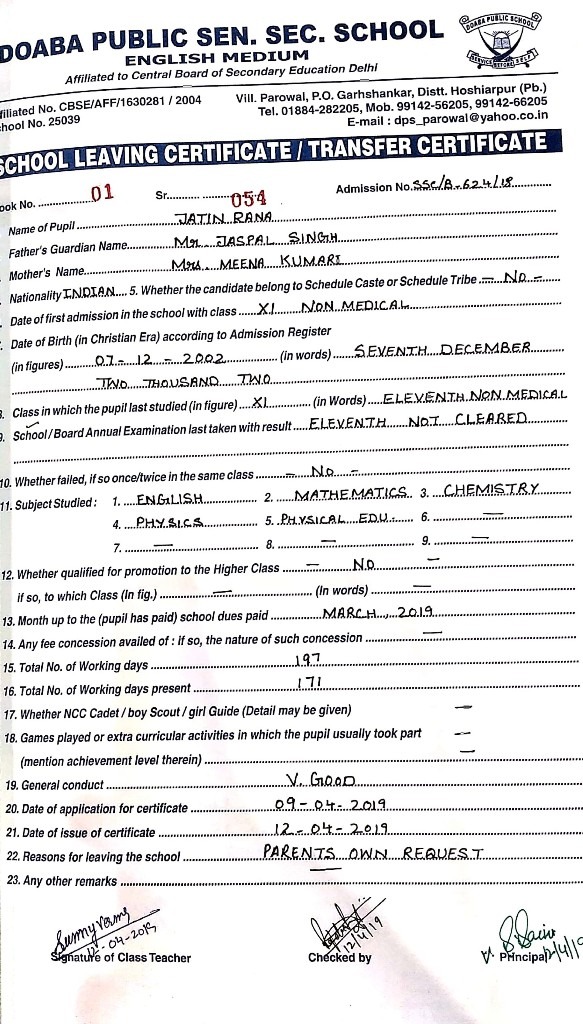 DOABA PUBLIC SEN. SEC. SCHOOL
DOABA PUBLIC SCHOOL
SERVICE BEFORE SELF
ENGLISH MEDIUM
Affiliated to Central Board of Secondary Education Delhi
filiated No. CBSE/AFF/1630281 / 2004
hool No. 25039
Vill. Parowal, P.O. Garhshankar, Distt. Hoshiarpur (Pb.)
Tel. 01884-282205, Mob. 99142-56205, 99142-66205
E-mail : dps_parowal@yahoo.co.in
SCHOOL LEAVING CERTIFICATE / TRANSFER CERTIFICATE
ook No. 01 Sr. 054 Admission No. SSC/B-624/18
Name of Pupil JATIN RANA
Father's Guardian Name Mr. JASPAL SINGH
Mother's Name Mrs. MEENA KUMARI
Nationality INDIAN 5. Whether the candidate belong to Schedule Caste or Schedule Tribe - No -
Date of first admission in the school with class XI NON MEDICAL
Date of Birth (in Christian Era) according to Admission Register
(in figures) 07-12-2002 (in words) SEVENTH DECEMBER
TWO THOUSAND TWO
8. Class in which the pupil last studied (in figure) XI (in Words) ELEVENTH NON MEDICAL
9. School / Board Annual Examination last taken with result ELEVENTH NOT CLEARED
10. Whether failed, if so once/twice in the same class - No -
11. Subject Studied : 1. ENGLISH 2. MATHEMATICS 3. CHEMISTRY
4. PHYSICS 5. PHYSICAL EDU. 6. —
7. — 8. — 9. —
12. Whether qualified for promotion to the Higher Class - NO -
if so, to which Class (In fig.) — (In words) —
13. Month up to the (pupil has paid) school dues paid MARCH, 2019
14. Any fee concession availed of : if so, the nature of such concession —
15. Total No. of Working days 197
16. Total No. of Working days present 171
17. Whether NCC Cadet / boy Scout / girl Guide (Detail may be given) —
18. Games played or extra curricular activities in which the pupil usually took part —
(mention achievement level therein) —
19. General conduct V. GOOD
20. Date of application for certificate 09-04-2019
21. Date of issue of certificate 12-04-2019
22. Reasons for leaving the school PARENTS OWN REQUEST
23. Any other remarks —
Sunny Verma
12-04-2019
12/4/19
12/4/19
Signature of Class Teacher Checked by Principal